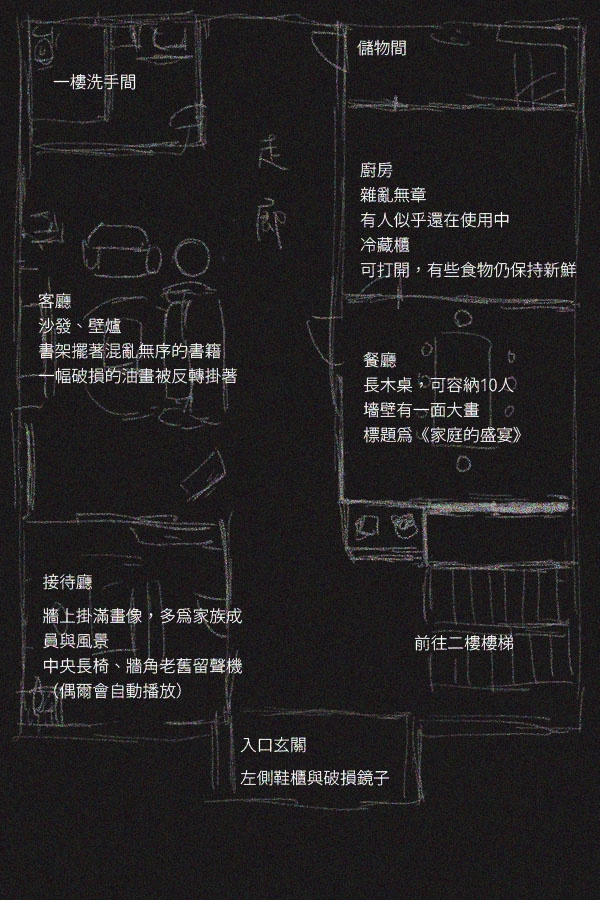 儲物間
一樓洗手間
走廊
廚房
雜亂無章
有人似乎還在使用中
冷藏櫃
可打開，有些食物仍保持新鮮
客廳
沙發、壁爐
書架擺著混亂無序的書籍
一幅破損的油畫被反轉掛著
餐廳
長木桌，可容納10人
墙壁有一面大畫
標題爲《家庭的盛宴》
接待廳
牆上掛滿畫像，多爲家族成
員與風景
中央長椅、牆角老舊留聲機
（偶爾會自動播放）
前往二樓樓梯
入口玄關
左側鞋櫃與破損鏡子